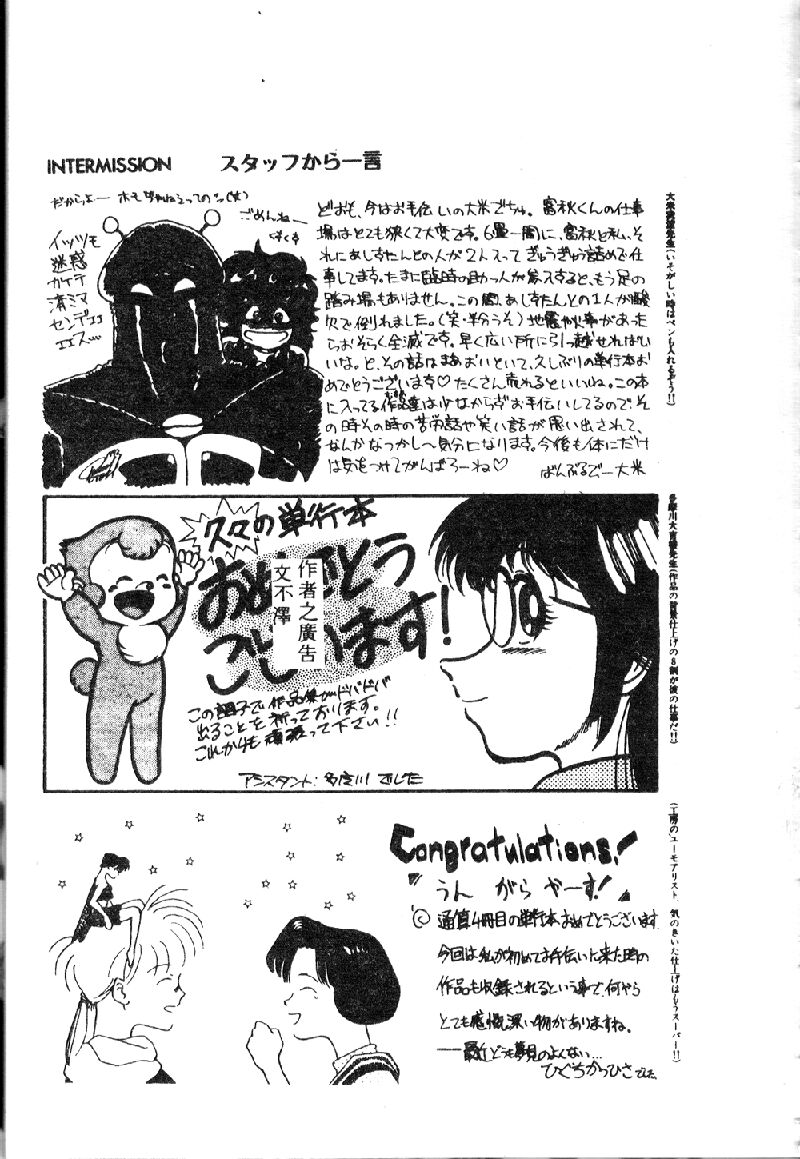 INTERMISSION スタッフから一言
だからよー ホモじゃねえっての
ごめんねー
イッツモ
迷惑
カケテ
済ミマ
センデェ
どおも、今はお手伝いの大米でちゅ。富秋くんの仕事
場はとても狭くて大変です。6畳一間に、富秋と私、そ
れにあしすたんとの人が2人入ってぎゅうぎゅう詰めで仕
事してます。たまに臨時の助っ人が
もう足の
踏み場もありません。この間、あしすたんとの1人が酸
欠で倒れました。(笑・半分うそ)地震か火事があった
らおそらく全滅です。早く広い所に引っ越せればい
いな。と、その話はまあおいといて、久しぶりの単行本お
めでとうございます♡たくさん売れるといいね。この本
に入ってる作品達は少なからずお手伝いしてるのでそ
の時その時の苦労話や笑い話が思い出されて、
なんかなつかし〜気分になります。今後も体にだけ
は気をつけてがんばろーね♡
ばんぶるびー大米
久々の単行本
おめでとう
ございます!
作者之廣告
文不譯
この調子で作品集がドバドバ
出ることを祈っております。
これからも頑張って下さい!!
アシスタント:多摩川 でした
Congratulations!
うん がら やーす!
通算4冊目の単行本おめでとうございます
今回は私が初めてお手伝いに来た時の
作品も収録されるという事で、何やら
とても感慨深い物がありますね。
——最近どうも夢見のよくない…
ひぐちかつひさでした
(いそがしい時はペンも入れるぞう!!)
(作品の背景仕上げの8割が彼の仕事だ!!)
(工房のユーモアリスト 気のきいた仕上げはもうスーパー!!)